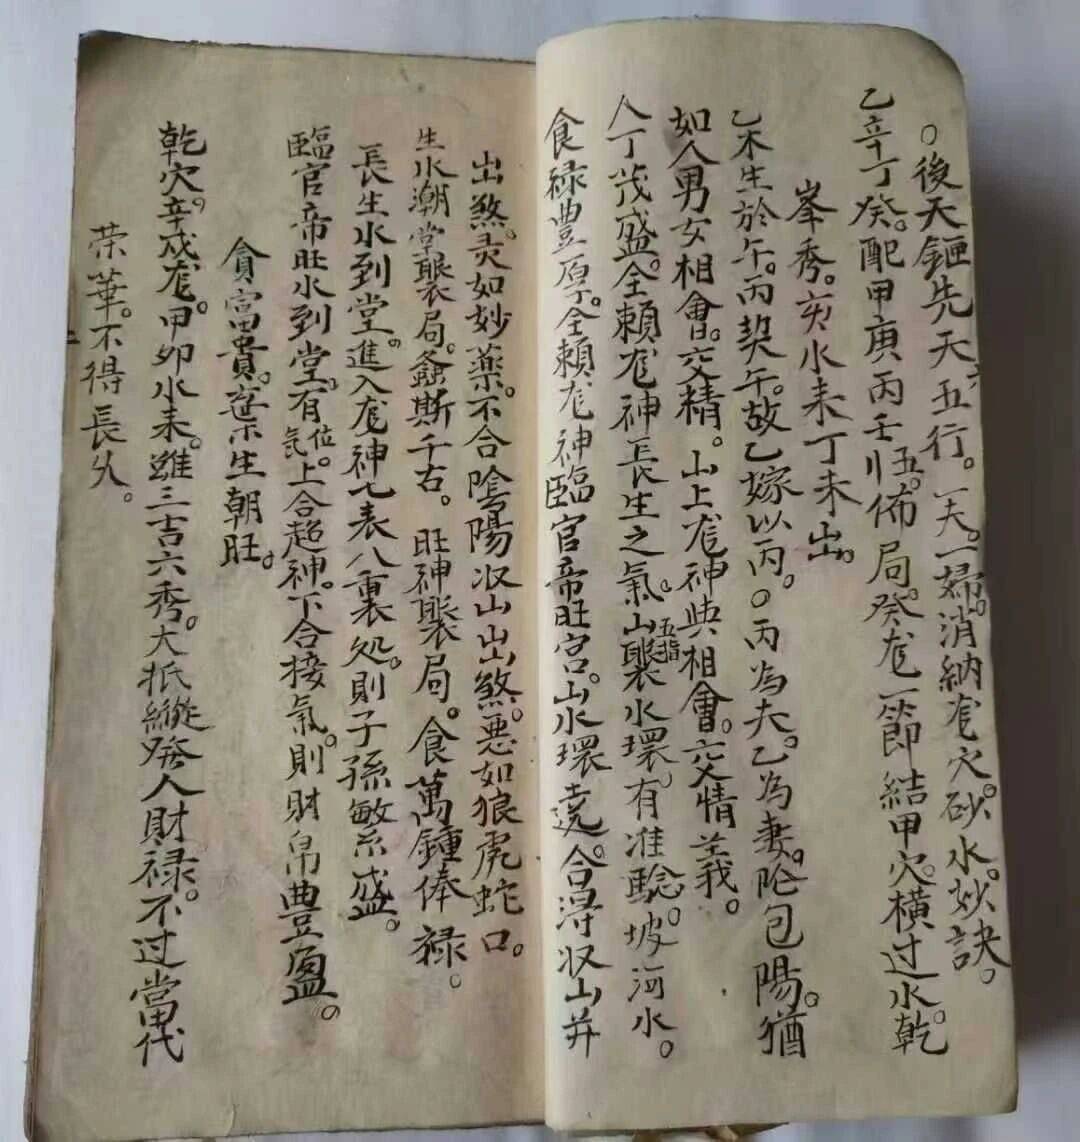 ○後天鉔先天五行。一夫。一婦。消納龙穴。砂水妙訣。
乙辛丁癸。配甲庚丙壬刂五。佈局。癸龙一節結甲穴。橫过水。乾
峯秀。亥水来丁未山。
乙木生於午。丙契午。故乙嫁以丙。○丙為夫。乙為妻。阴包陽。猶
如人男女相會。交精。山上龙神與相會。交情主我。
人丁茂盛。全賴龙神長生之氣。五指山聚水環。有准騐。坡河水。
食禄豊厚。全賴龙神臨官帝旺宫。山水環遶。合得収山并
出煞。灵如妙藥。不合陰陽収山出煞。悪如狼虎蛇口。
生水潮堂聚局。螽斯千古。旺神聚局。食萬鍾俸禄。
長生水到堂。進入龙神七表八裏処。則子孫敏系盛。
臨官帝旺水到堂。有位氣。上合超神。下合接氣。則財帛豊盈。
貪富貴。定不生朝旺。
乾穴。辛戌龙。甲卯水来。雖三吉六秀。大抵縱発人財禄。不过當代
荣華。不得長久。